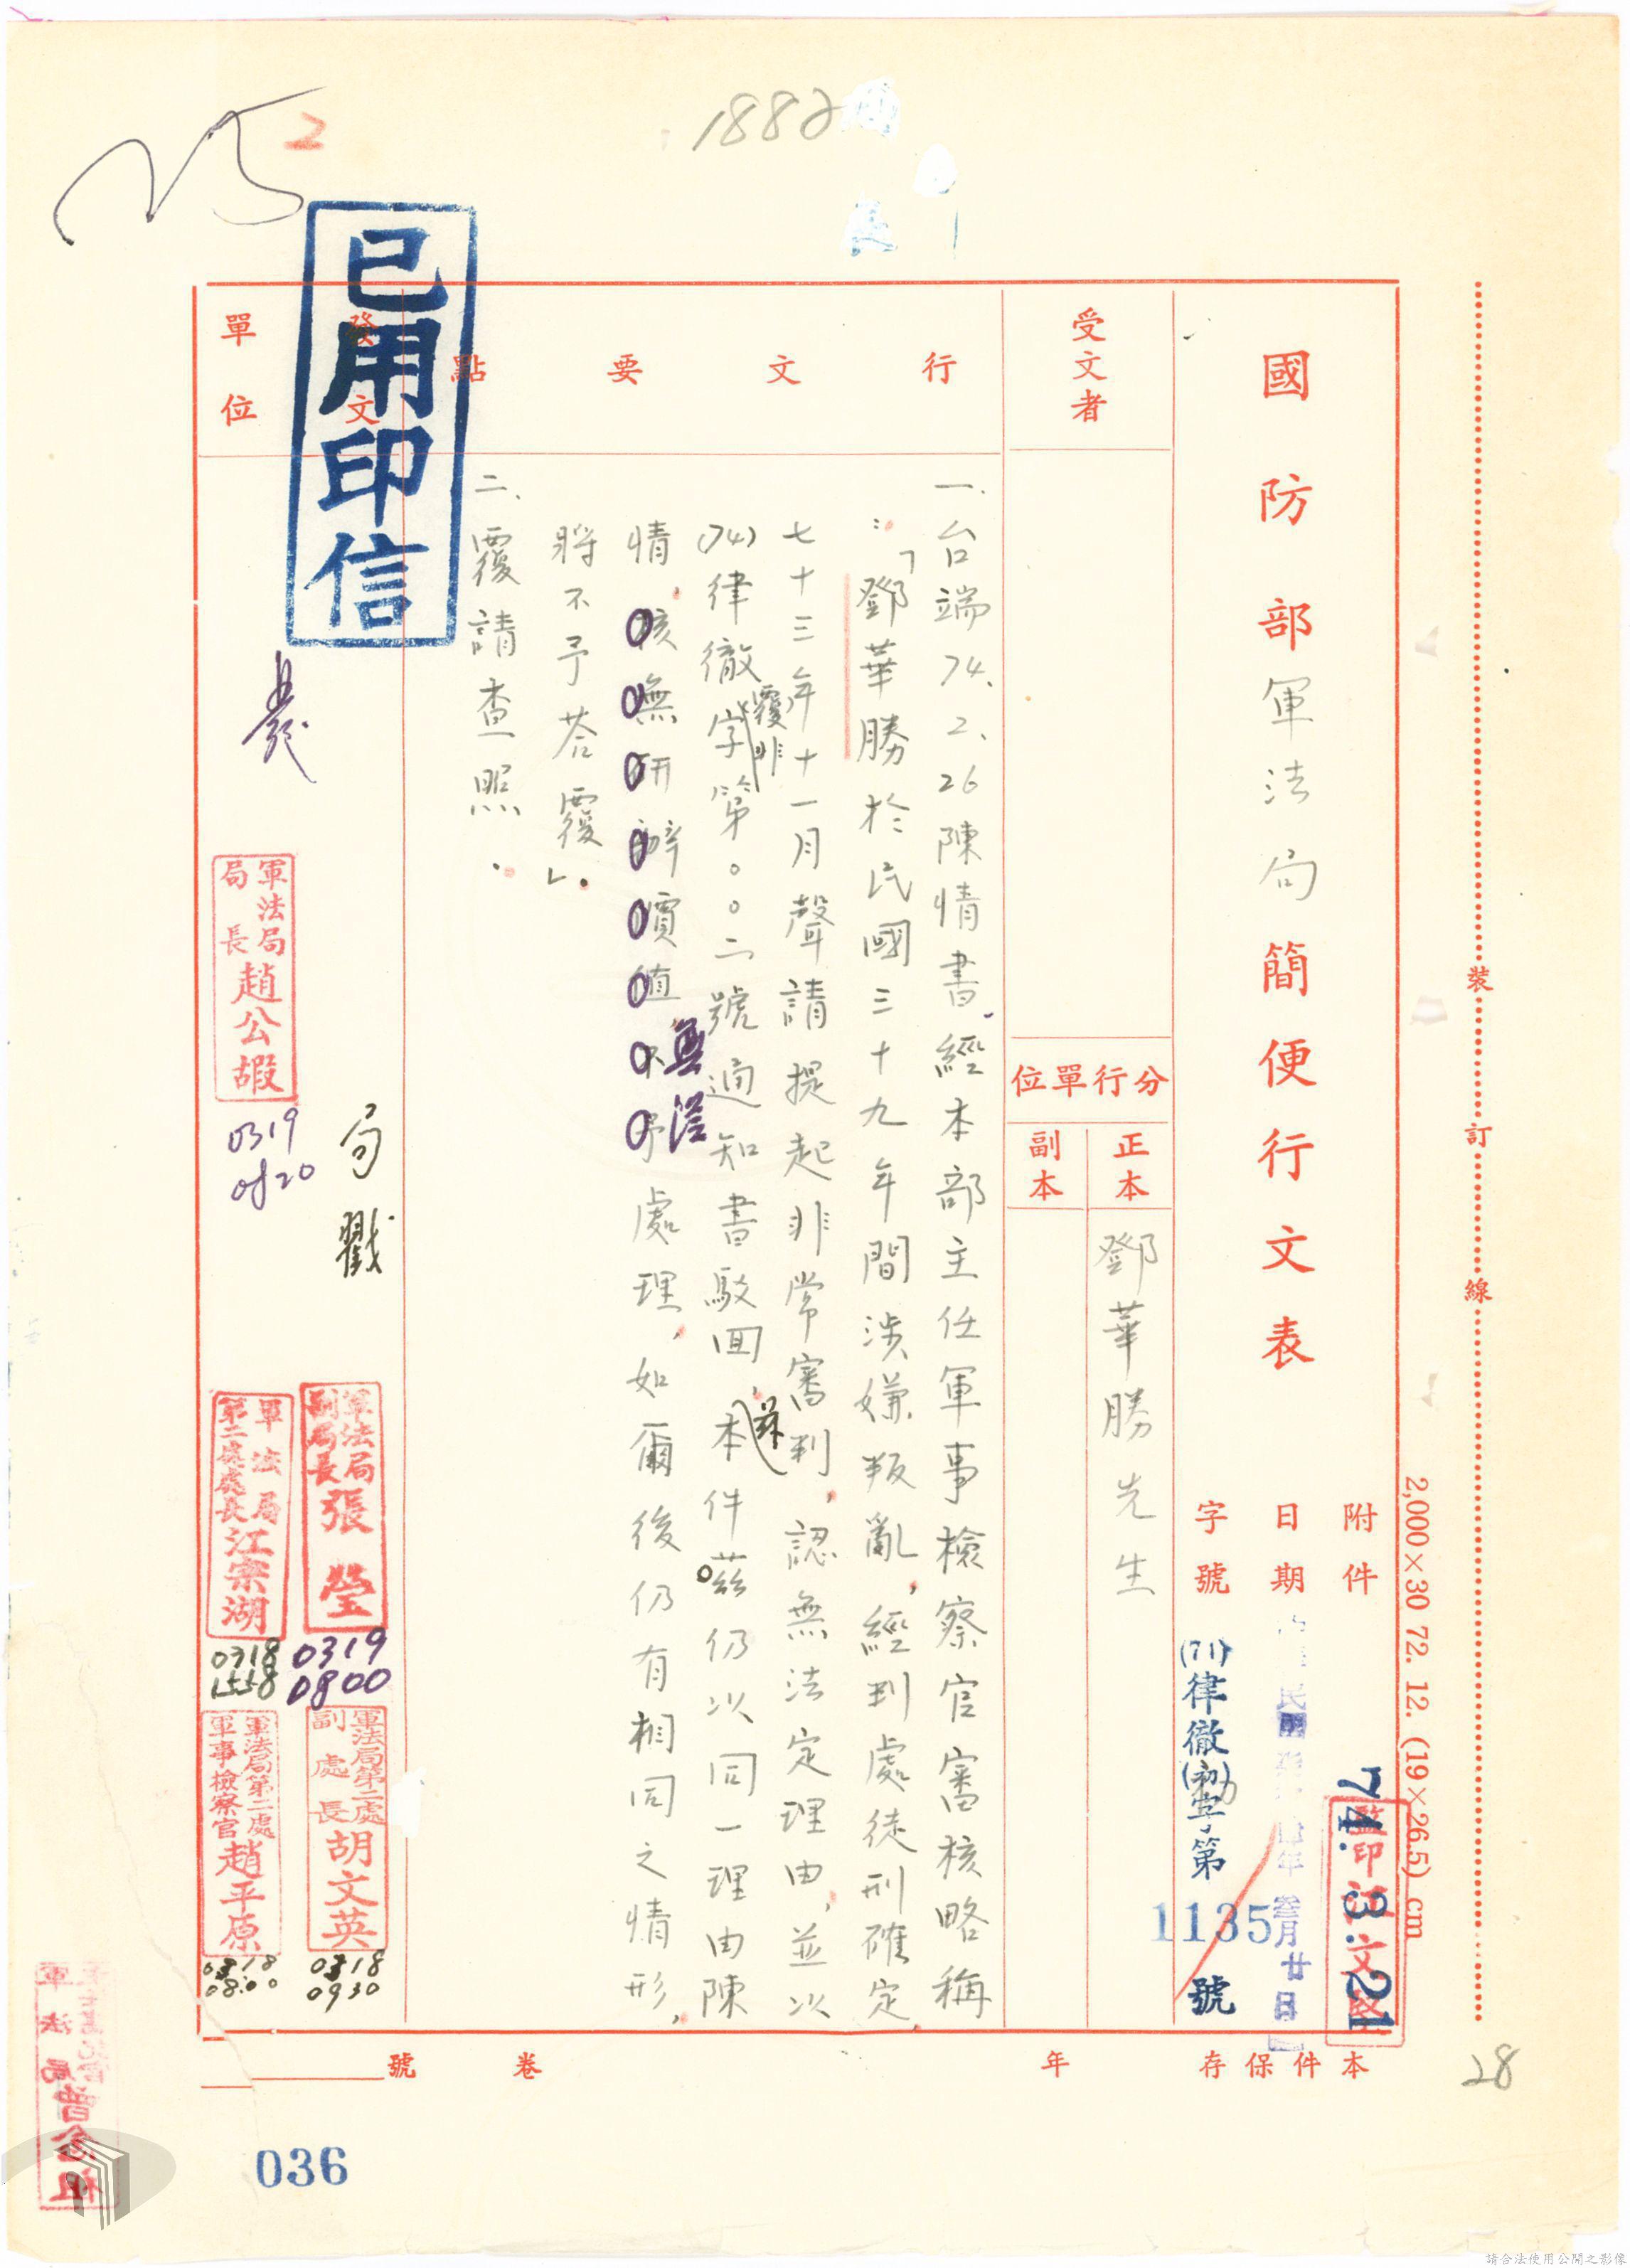 1882
2
已用印信
國防部軍法局簡便行文表
裝訂線
2,000×30 72. 12. (19×26.5) cm
附件
日期
民國 年叁月廿日
字號
(71)律徹(初)字第1135號
74. 3. 21
監印 文
受文者
分行單位
正本
副本
鄧華勝先生
行文要點
一、台端74.2.26陳情書,經本部主任軍事檢察官審核略稱
:「鄧華勝於民國三十九年間涉嫌叛亂,經判處徒刑確定,
七十三年十一月聲請提起非常審判,認無法定理由,並以
(74)律徹字覆非第○○二號通知書駁回,本件茲仍以同一理由陳
茲
情,核無研辦價值,不予處理,如爾後仍有相同之情形,
無從
將不予荅覆」。
二、覆請查照。
發文單位
局戳
軍法局局長趙公嘏
0319
0820
軍法局副局長張瑩
0319
0800
軍法局第二處處長江寀湖
0318
1558
軍法局第二處副處長胡文英
0318
0930
軍法局第二處軍事檢察官趙平原
0318
08:00
本件保存 年 卷 號
28
軍法局
036
請合法使用公開之影像